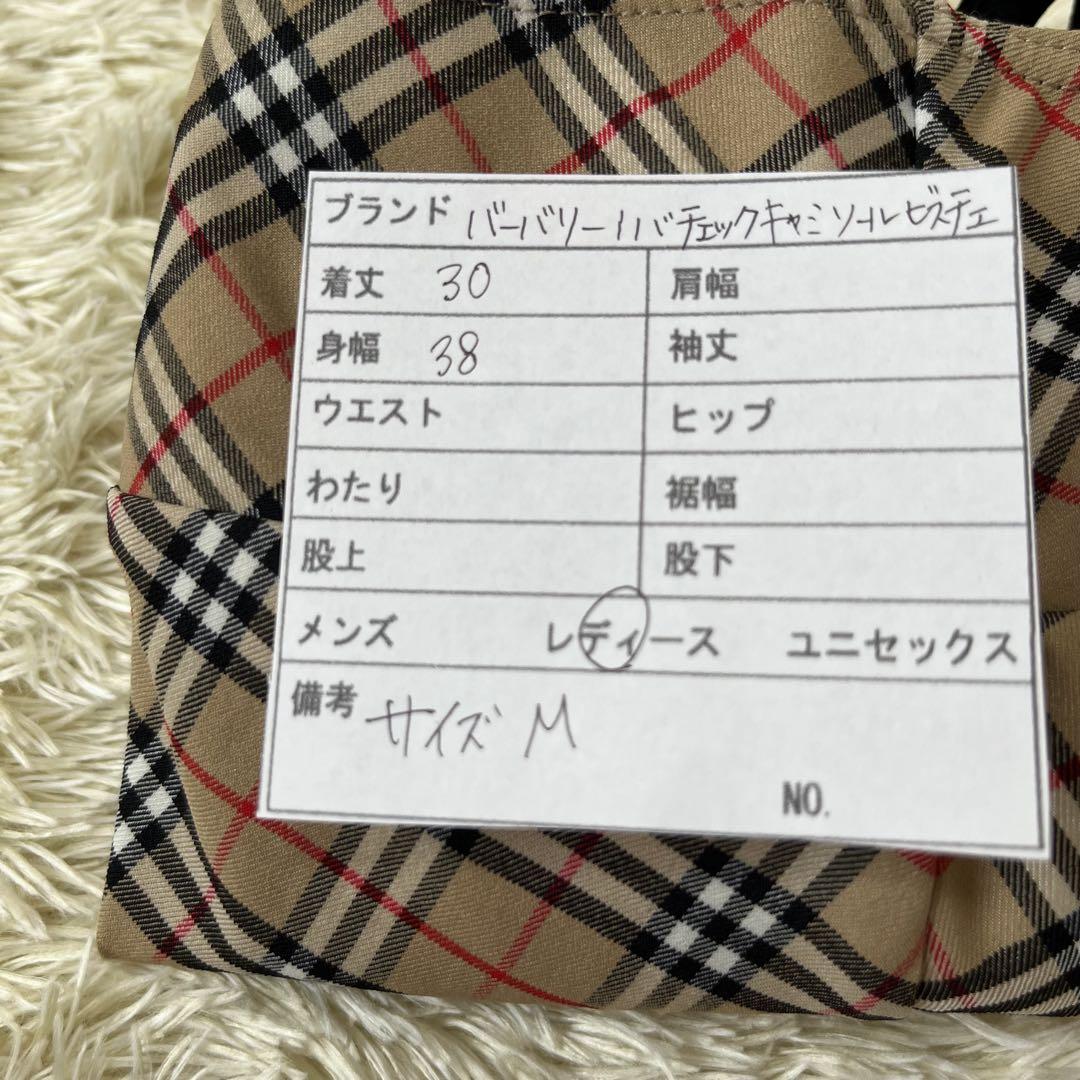 ブランド バーバリーノバチェックキャミソールビスチェ
着丈 30 肩幅
身幅 38 袖丈
ウエスト ヒップ
わたり 裾幅
股上 股下
メンズ レディース ユニセックス
備考 サイズ M
NO.